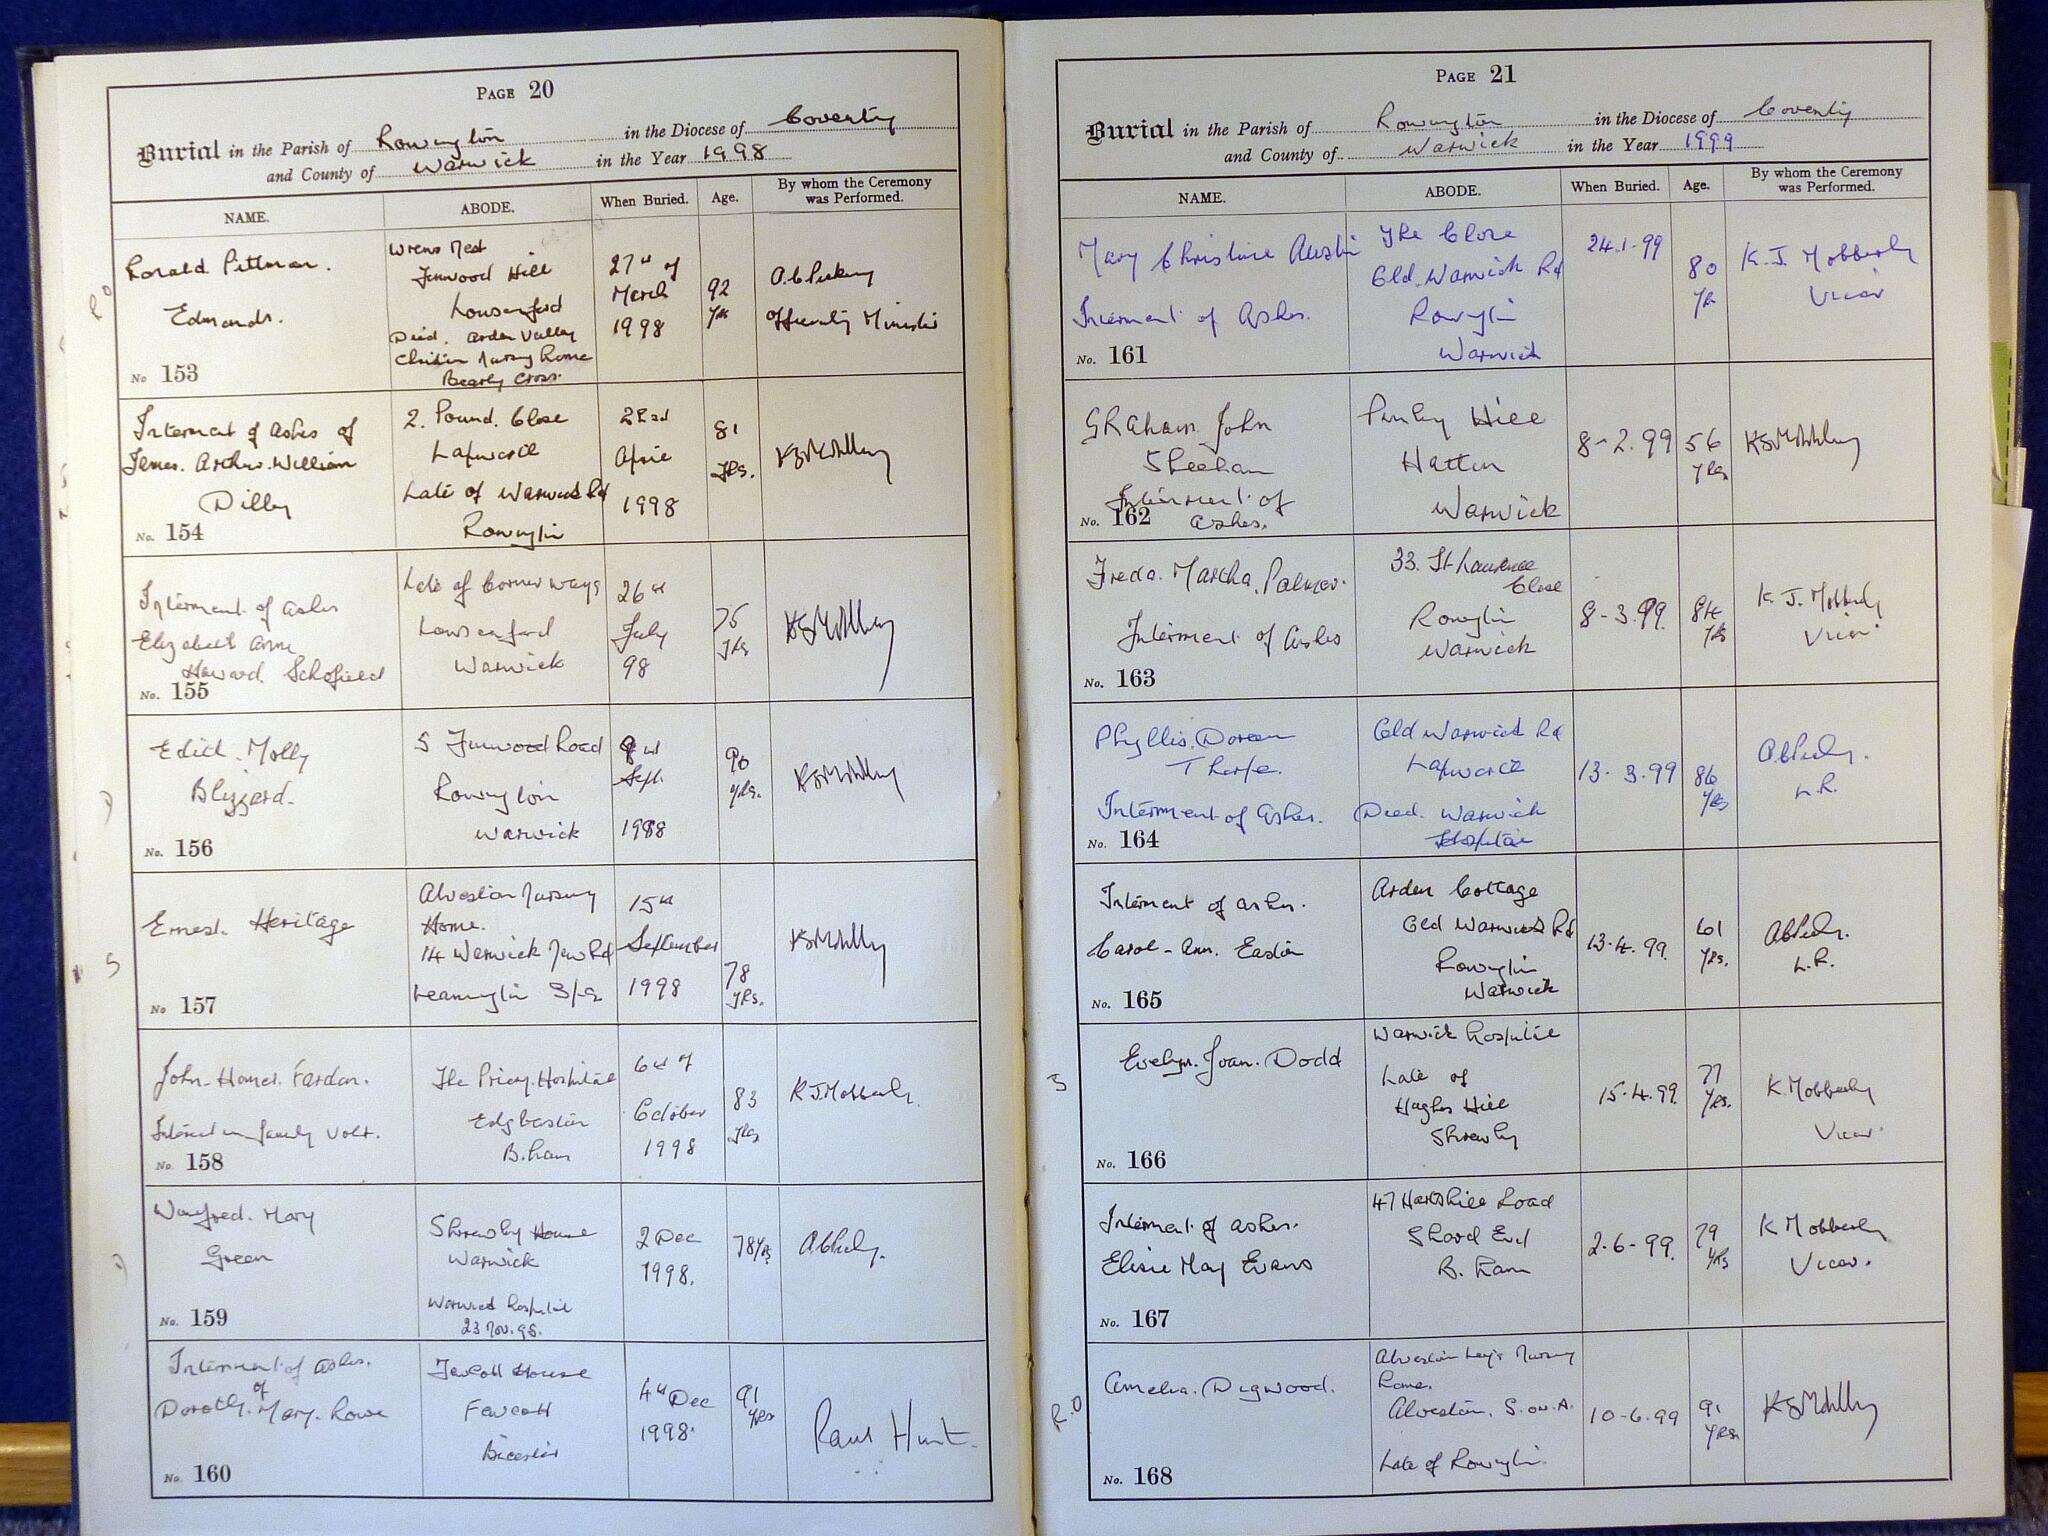 PAGE 20
Burial in the Parish of Rowington in the Diocese of Coventry
and County of Warwick in the Year 1998
NAME. ABODE. When Buried. Age. By whom the Ceremony was Performed.
Ronald Pittman.
Edmonds.
No 153
Wrens Nest
Finwood Hill
Lowsonford
Died. Arden Valley
Christian Nursing Home
Bearly Cross.
27th of
March
1998
92
yrs
Officiating Minister
Interment of Ashes of
James. Arthur. William
Dilley
No. 154
2. Pound. Close
Lapworth
Late of Warwick Rd
Rowington
22nd
April
1998
81
yrs.
KJMobberley
Interment of Ashes
Elizabeth Anne
Howard Schofield
No. 155
Late of Corner Ways
Lowsonford
Warwick
26th
July
98
75
yrs
KJMobberley
Edith. Molly
Blizzard.
No. 156
5 Finwood Road
Rowington
Warwick
Sept.
1998
90
yrs.
KJMobberley
Ernest. Heritage
No 157
Alveston Nursing
Home.
14 Warwick New Rd
Leamington Spa
15th
September
1998
78
yrs.
KJMobberley
John-Homer. Fardon.
Interred in family volt.
No. 158
The Priory. Hospital
Edgbaston
B.ham
6th of
October
1998
83
yrs
K J Mobberley.
Winifred. Mary
Green
No. 159
Shrewley House
Warwick
Warwick Hospital
23 Nov. 98.
2 Dec
1998.
78 yrs
Interment of Ashes.
of
Dorothy. Mary. Rowe
No. 160
House
Fewcott
Bicester
4th Dec
1998.
91
yrs
Paul Hunt.
PAGE 21
Burial in the Parish of Rowington in the Diocese of Coventry
and County of Warwick in the Year 1999
NAME. ABODE. When Buried. Age. By whom the Ceremony was Performed.
Mary Christine Austin
Interment of Ashes.
No. 161
The Close
Old Warwick Rd
Rowington
Warwick
24.1.99
80
yrs
K. J. Mobberley
Vicar
Graham John
Sheehan
Interment of
Ashes.
No. 162
Pinley Hill
Hatton
Warwick
8-2.99
56
yrs
KJMobberley
Freda. Martha. Palmer.
Interment of Ashes
No. 163
33. St Laurence
Close
Rowington
Warwick
8-3.99.
84
yrs
K. J. Mobberley
Vicar.
Phyllis. Doreen
Thorpe.
Interment of Ashes.
No. 164
Old Warwick Rd
Lapworth
Died. Warwick
Hospital
13. 3.99
86
yrs
L.R.
Interment of ashes.
Carol-Ann. Easton
No. 165
Arden Cottage
Old Warwick Rd
Rowington
Warwick
13.4.99.
61
yrs.
L.R.
Evelyn. Joan. Dodd
No. 166
Warwick Hospital
Late of
Hughes Hill
Shrewley
15.4.99.
77
yrs.
K Mobberley
Vicar.
Interment of ashes.
Elsie May Evans
No. 167
47 Hartshill Road
Shard End
B. Ham
2.6-99.
79
yrs
K Mobberley
Vicar.
Amelia. Digwood.
No. 168
Alveston Leys Nursing
Home.
Alveston. S. on. A.
Late of Rowington.
10-6.99
91
yrs.
KJMobberley
R.O